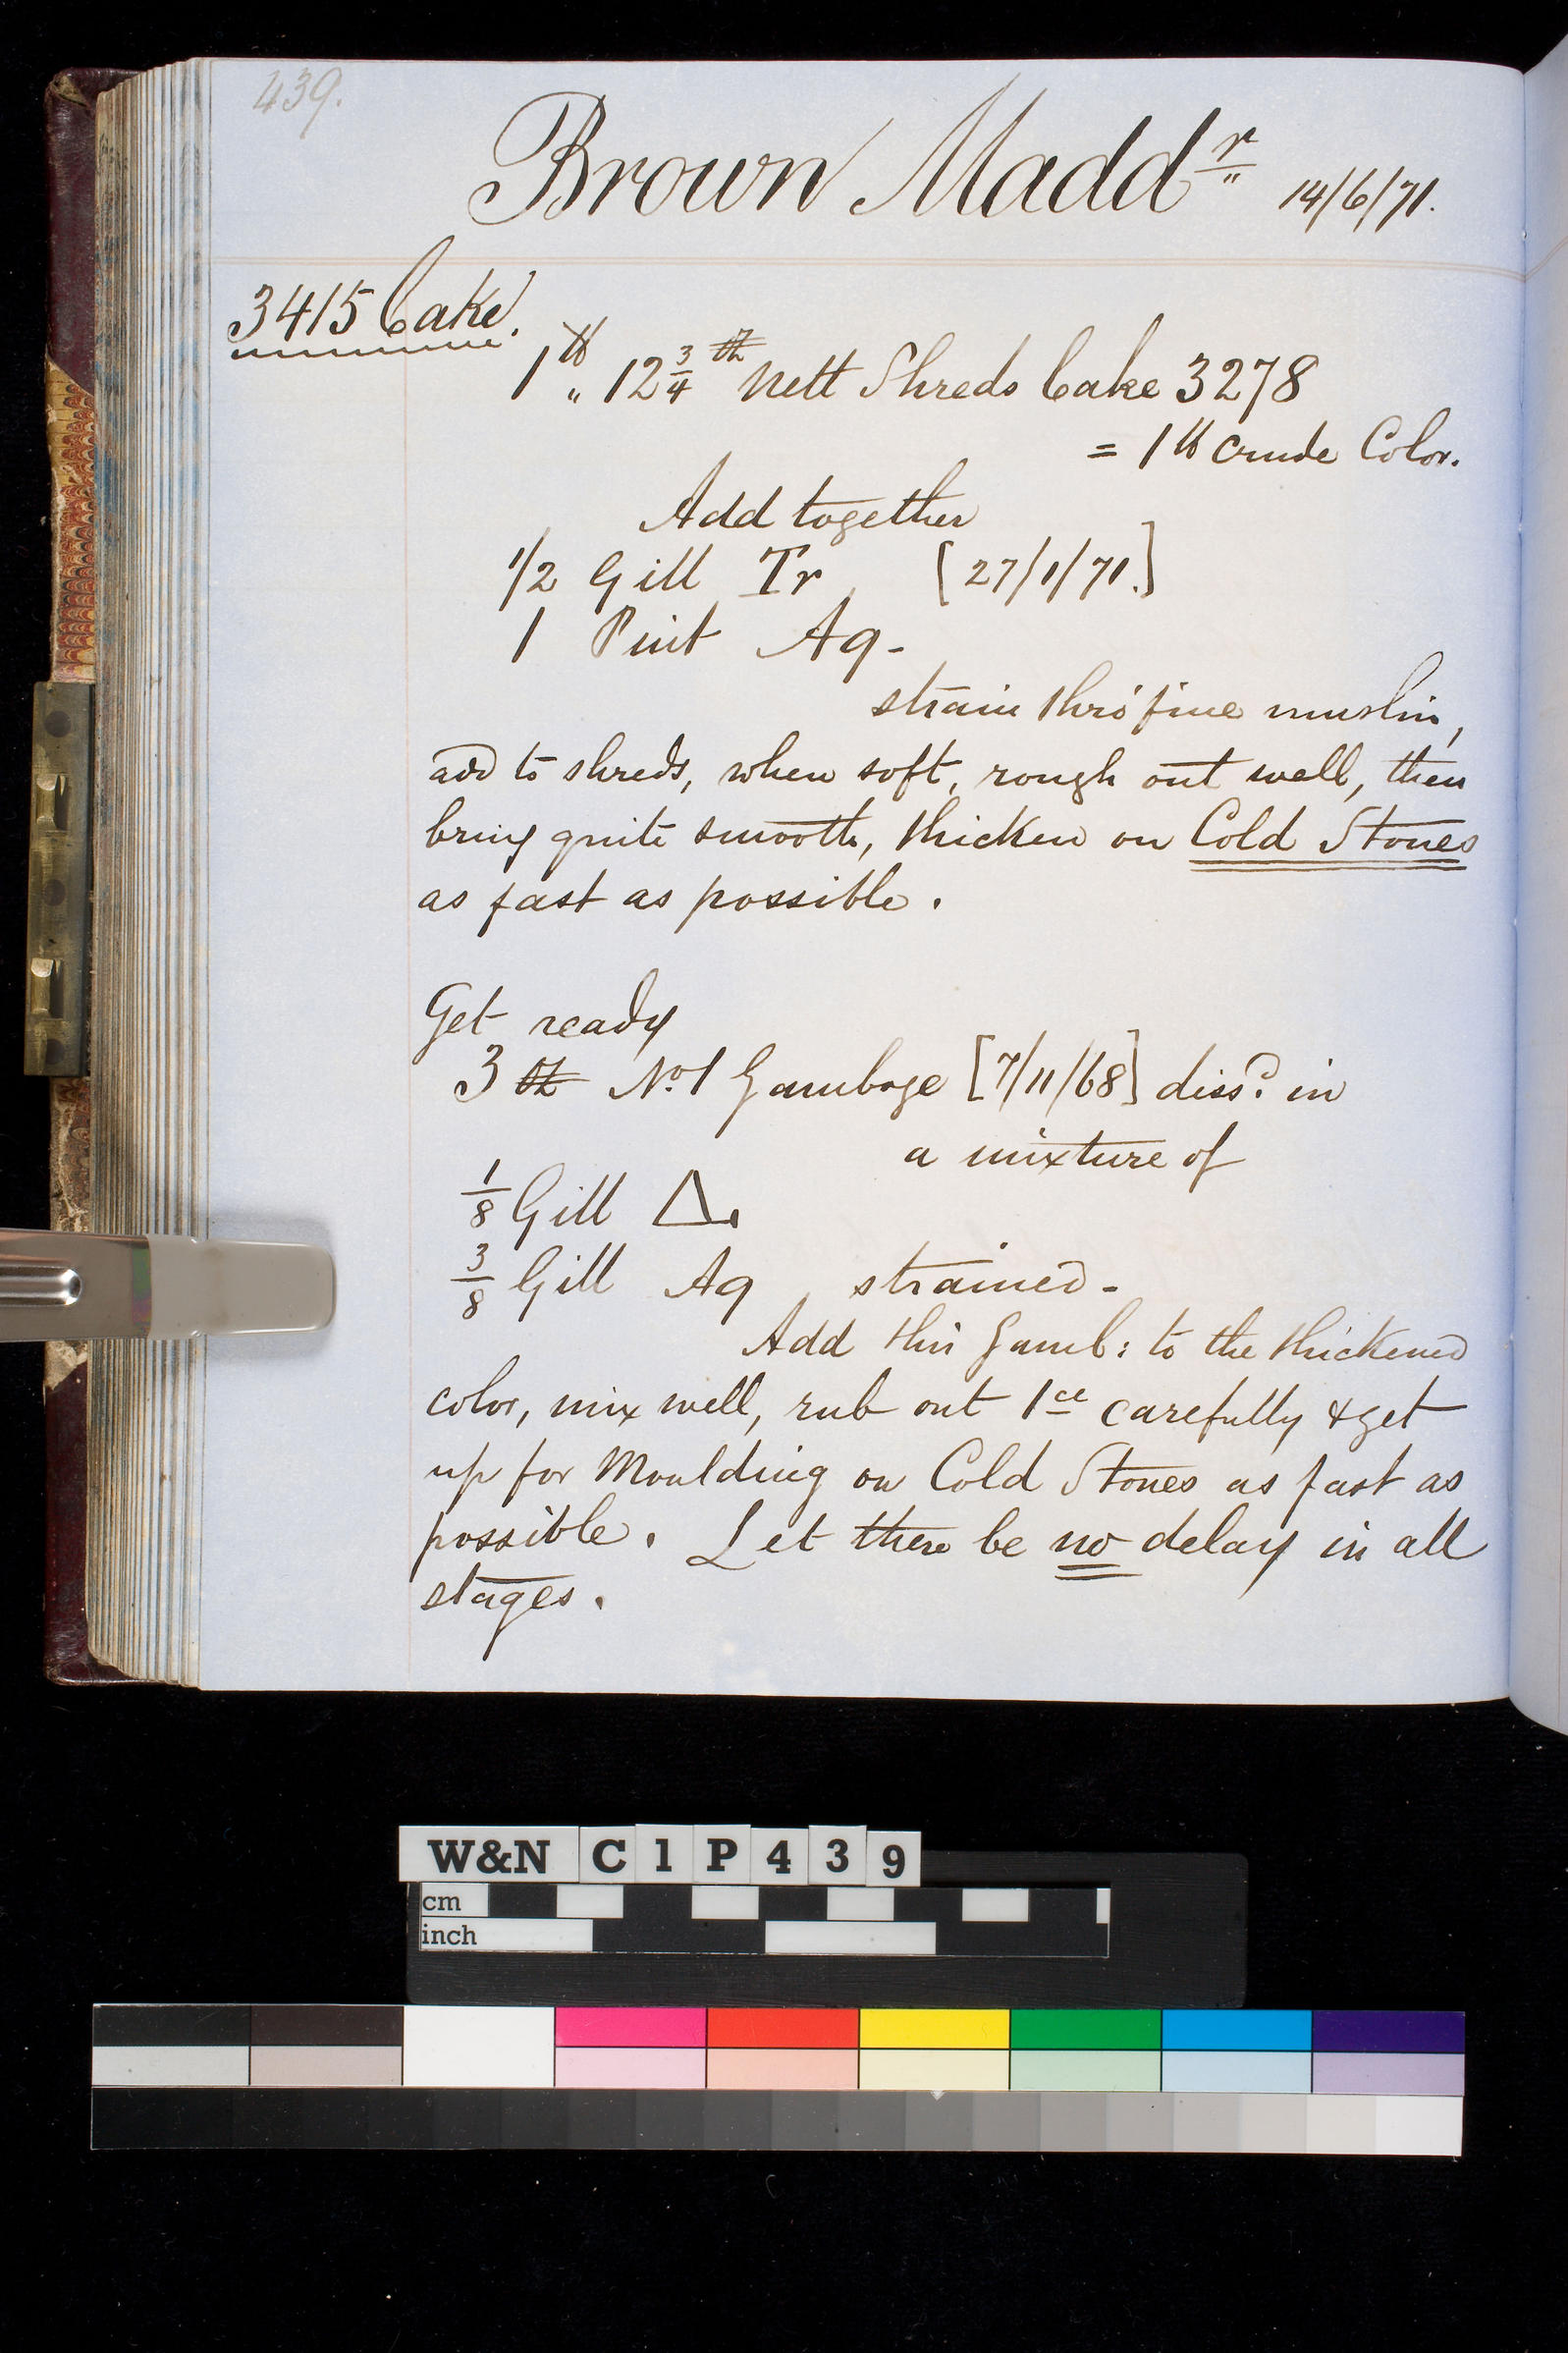 439.
Brown Madd^r 14/6/71.
3415 Cake.
1 lb „ 12 3/4 oz nett Shreds Cake 3278
= 1 lb Crude Color.
Add together
1/2 Gill Tr [27/1/71.]
1 Pint Aq -
strain thro' fine muslin,
add to shreds, when soft, rough out well, then
bring quite smooth, thicken on Cold Stones
as fast as possible.
Get ready
3 oz No. 1 Gamboge [7/11/68] diss^d in
a mixture of
1/8 Gill △.
3/8 Gill Aq, strained -
Add this Gamb: to the thickened
color, mix well, rub out 1^ce carefully & get
up for Moulding on Cold Stones as fast as
possible. Let there be no delay in all
stages.
W&N C1P439
cm
inch